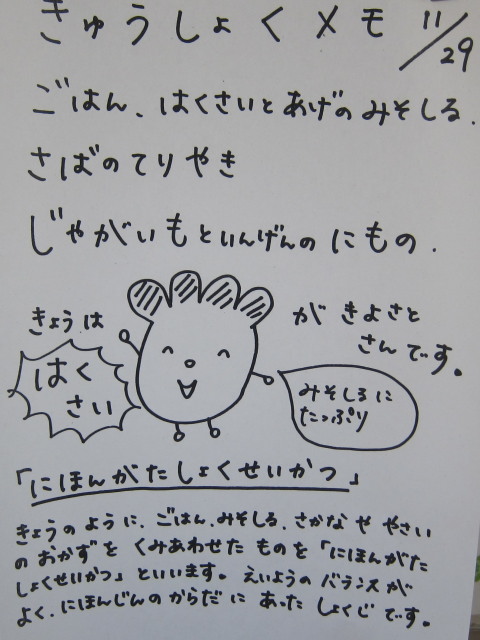 きゅうしょくメモ 11/29
ごはん、はくさいとあげのみそしる、
さばのてりやき
じゃがいもといんげんのにもの.
きょうは
はく
さい
が きよさと
さんです。
みそしるに
たっぷり
「にほんがたしょくせいかつ」
きょうのように、ごはん、みそしる、さかなややさい
のおかずをくみあわせたものを「にほんがた
しょくせいかつ」といいます。えいようのバランスが
よく、にほんじんのからだにあったしょくじです。